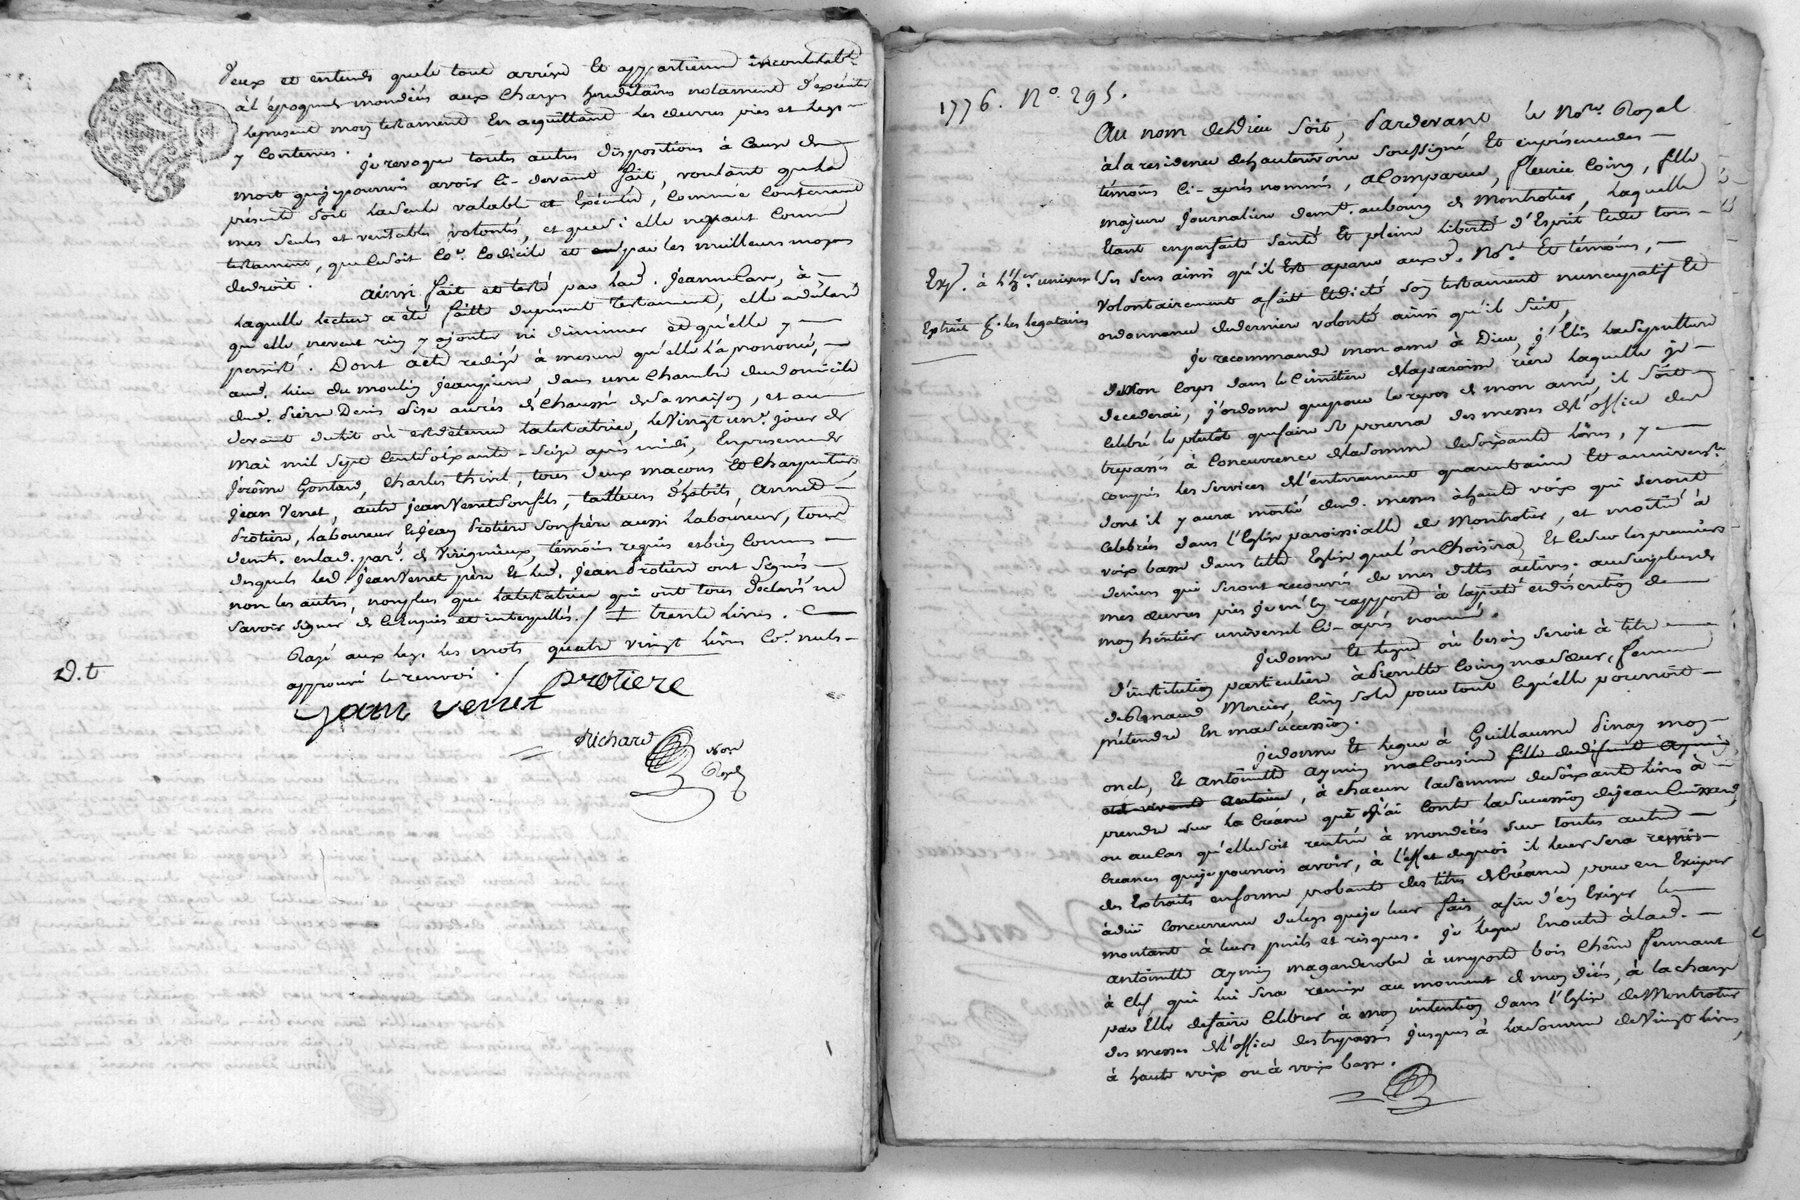 veux et entends que le tout arrive et appartienne incontestabt.
à l'époque de mon décès aux charges héréditaires notament d'exécuter
le present mon testament en acquittant les œuvres pies et legs
y contenus.
Je revoque toutes autres dispositions à cause de
mort que je pourrois avoir ci-devant fait, voulant que la
présente soit la seule valable et exécutée, comme contenant
mes seules et veritables volontés, et que si elle ne vaut comme
testament, que ce soit co.e codicile et par les meilleurs moyens
de droit. Ainsi fait et testé par lad. Jeanne
laquelle lecture a été faitte du present testament, elle a déclaré
qu'elle ne veut rien y ajouter ni diminuer et qu'elle y
persiste. Dont acte redigé à mesure qu'elle l'a prononcé,
aud. lieu du moulin Jeanpierre, dans une chambre du domicile
dud. Pierre Denis sise au rés de chaussée de la maison, et au
devant du lit où est detenue la testatrice, le vingt un.e jour de
mai mil sept cent soixante-seize après midi, en presence de
Jérôme Gontard, Charles Thivil, tous deux macons et charpentiers,
Jean Venet, autre Jean Venet son fils, tailleurs d'habits, Annet
Protière, laboureur et Jean Protière son frère aussi laboureur, tous
demt. en lad. par. de Virigneux, témoins requis et bien connus
desquels led. Jean Venet père et led. Jean Protière ont signés
non les autres, non plus que la testatrice qui ont tous déclarés ne
savoir signer de ce enquis et interpellés. / ‡ trente livres.
Rayé aux legs les mots quatre vingt livres co.e nuls
approuvé le renvoi.
D.t
Jean venet protiere
Richard
Nore
Royal
1776. No. 295.
Au nom de Dieu soit, Pardevant le Nore. Royal
à la residence de hauterivoire soussigné et en présence des
témoins ci-après nommés, a comparue, fleurie Coing, fille
majeure journalière demt. au bourg de Montrotier, laquelle
étant en parfaite santé et pleine liberté d'Esprit de tous
Exp. à l'her. universel
ses sens ainsi qu'il est aparu aux d. Nore. et témoins,
volontairement a fait et dicté son testament nuncupatif et
Extrait p. les legataires
ordonnance de derniere volonté ainsi qu'il suit,
Je recommande mon ame à Dieu, j'élis la sepulture
de mon corps dans le cimetière de la paroisse rière laquelle je
decederai, j'ordonne que pour le repos de mon ame, il soit
celebré le plutot que faire se pourra des messes de l'office des
trepassés à concurrence de la somme de soixante livres, y
compris les services de l'enterrement quarantaine et anniversre.
dont il y aura moitié desd. messes à haute voix qui seront
celebrées dans l'Eglise paroissialle de Montrotier, et moitié à
voix basse dans telle Eglise que l'on choisira, et ce sur les premiers
deniers qui seront recouvrés de mes dettes actives. au surplus de
mes œuvres pies je m'en rapporte à la piété et discrétion de
mon héritier universel ci-après nommé.
Je donne et legue où besoin seroit à titre
d'institution particulière à Pierrette Coing ma sœur, femme
de Renaud Mercier, cinq sols pour tout ce qu'elle pourroit
prétendre en ma succession.
Je donne et legue à Guillaume Pinay mon
oncle, et antoinette Aymin ma cousine fille de defunt Aymin,
, à chacun la somme de soixante livres à
prendre sur la créance que j'ai contre la succession de jean Cuissard,
ou au cas qu'elle soit rentrée à mon décès sur toutes autres
creances que je pourrois avoir, à l'effet de quoi il leur sera remis
des Extraits en forme probante des titres de créance pour en exciper
à due concurrence du legs que je leur fais afin d'en exiger le
montant à leurs perils et risques. Je legue en outre à lad.
antoinette Aymin ma garderobe à une porte bois chêne fermant
à clef qui lui sera remise au moment de mon décés, à la charge
par Elle de faire celebrer à mon intention dans l'Eglise de Montrotier
des messes de l'office des trepassés jusques à la somme de vingt livres,
à haute voix ou à voix basse.